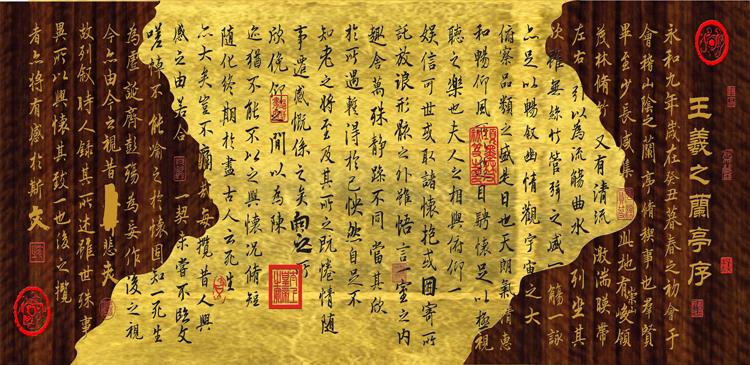 王羲之蘭亭序
永和九年歲在癸丑暮春之初會于
會稽山陰之蘭亭脩禊事也羣賢
畢至少長咸集此地有崇山峻領
茂林脩竹又有清流激湍暎帶
左右引以為流觴曲水列坐其
次雖無絲竹管弦之盛一觴一詠
亦足以暢叙幽情觀宇宙之大
俯察品類之盛是日也天朗氣清惠
和暢仰風目騁懷足以極視
聽之樂也夫人之相與俯仰一
娛信可世或取諸懷抱或因寄所
託放浪形骸之外雖悟言一室之内
趣舍萬殊靜躁不同當其欣
於所遇輒得於己怏然自足不
知老之將至及其所之既惓情隨
事遷感慨係之矣向之所
欣俛仰之間以為陳
迹猶不能不以之興懷況脩短
隨化終期於盡古人云死生
亦大矣豈不痛哉每攬昔人興
感之由若合一契未嘗不臨文
嗟悼不能喻之於懷固知一死生
為虛誕齊彭殤為妄作後之視
今亦由今之視昔悲夫
故列叙時人録其所述雖世殊事
異所以興懷其致一也後之攬
者亦將有感於斯文